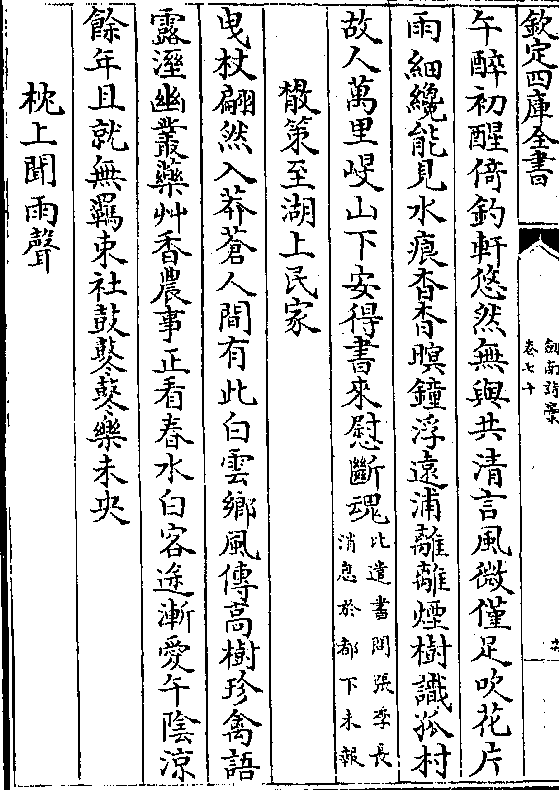 欽定四庫全書
劍南詩藁
卷七十
午醉初醒倚釣軒悠然無與共清言風微僅足吹花片
雨細纔能見水痕杳杳暝鐘浮遠浦離離煙樹識孤村
故人萬里岷山下安得書來慰斷魂比遣書問張季長
消息於都下未報
散策至湖上民家
曳杖翩然入莽蒼人間有此白雲鄉風傳高樹珍禽語
露溼幽叢藥艸香農事正看春水白客途漸愛午陰涼
餘年且就無羈束社鼓鼕鼕樂未央
枕上聞雨聲